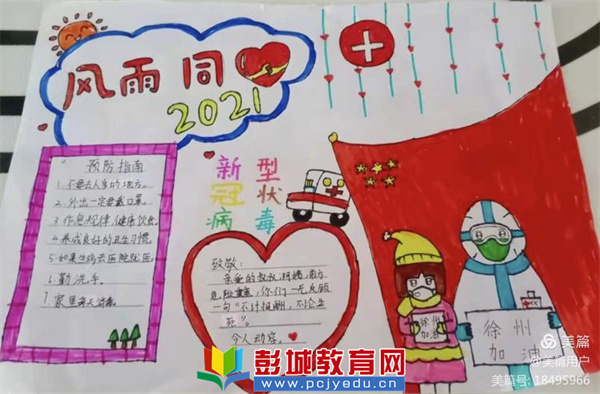 风雨同
2021
预防指南
1.不要去人多的地方。
2.外出一定要戴口罩。
3.作息规律,健康饮食。
4.养成良好的卫生习惯。
5.如果生病去医院就医。
6.勤洗手。
7.家里每天消毒。
新型
冠状
病毒
致敬:
亲爱的叔叔,阿姨,前方
危险重重,你们一无反顾
一句“不计报酬,不论生
死”。
令人动容。
徐州
加油
徐州
加油
彭城教育网
www.pcjyedu.cn
美篇
@美篇用户
美篇号:18495966